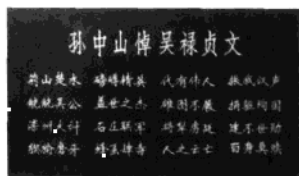 孙中山悼吴禄贞文
荆山楚水 磅礴精英 代有伟人 振我汉声
觥觥吴公 盖世之杰 雄图不展 捐躯殉国
滦州大计 石庄联军 将犁虏廷 建不世勋
磨牙 人之云亡 百身莫赎